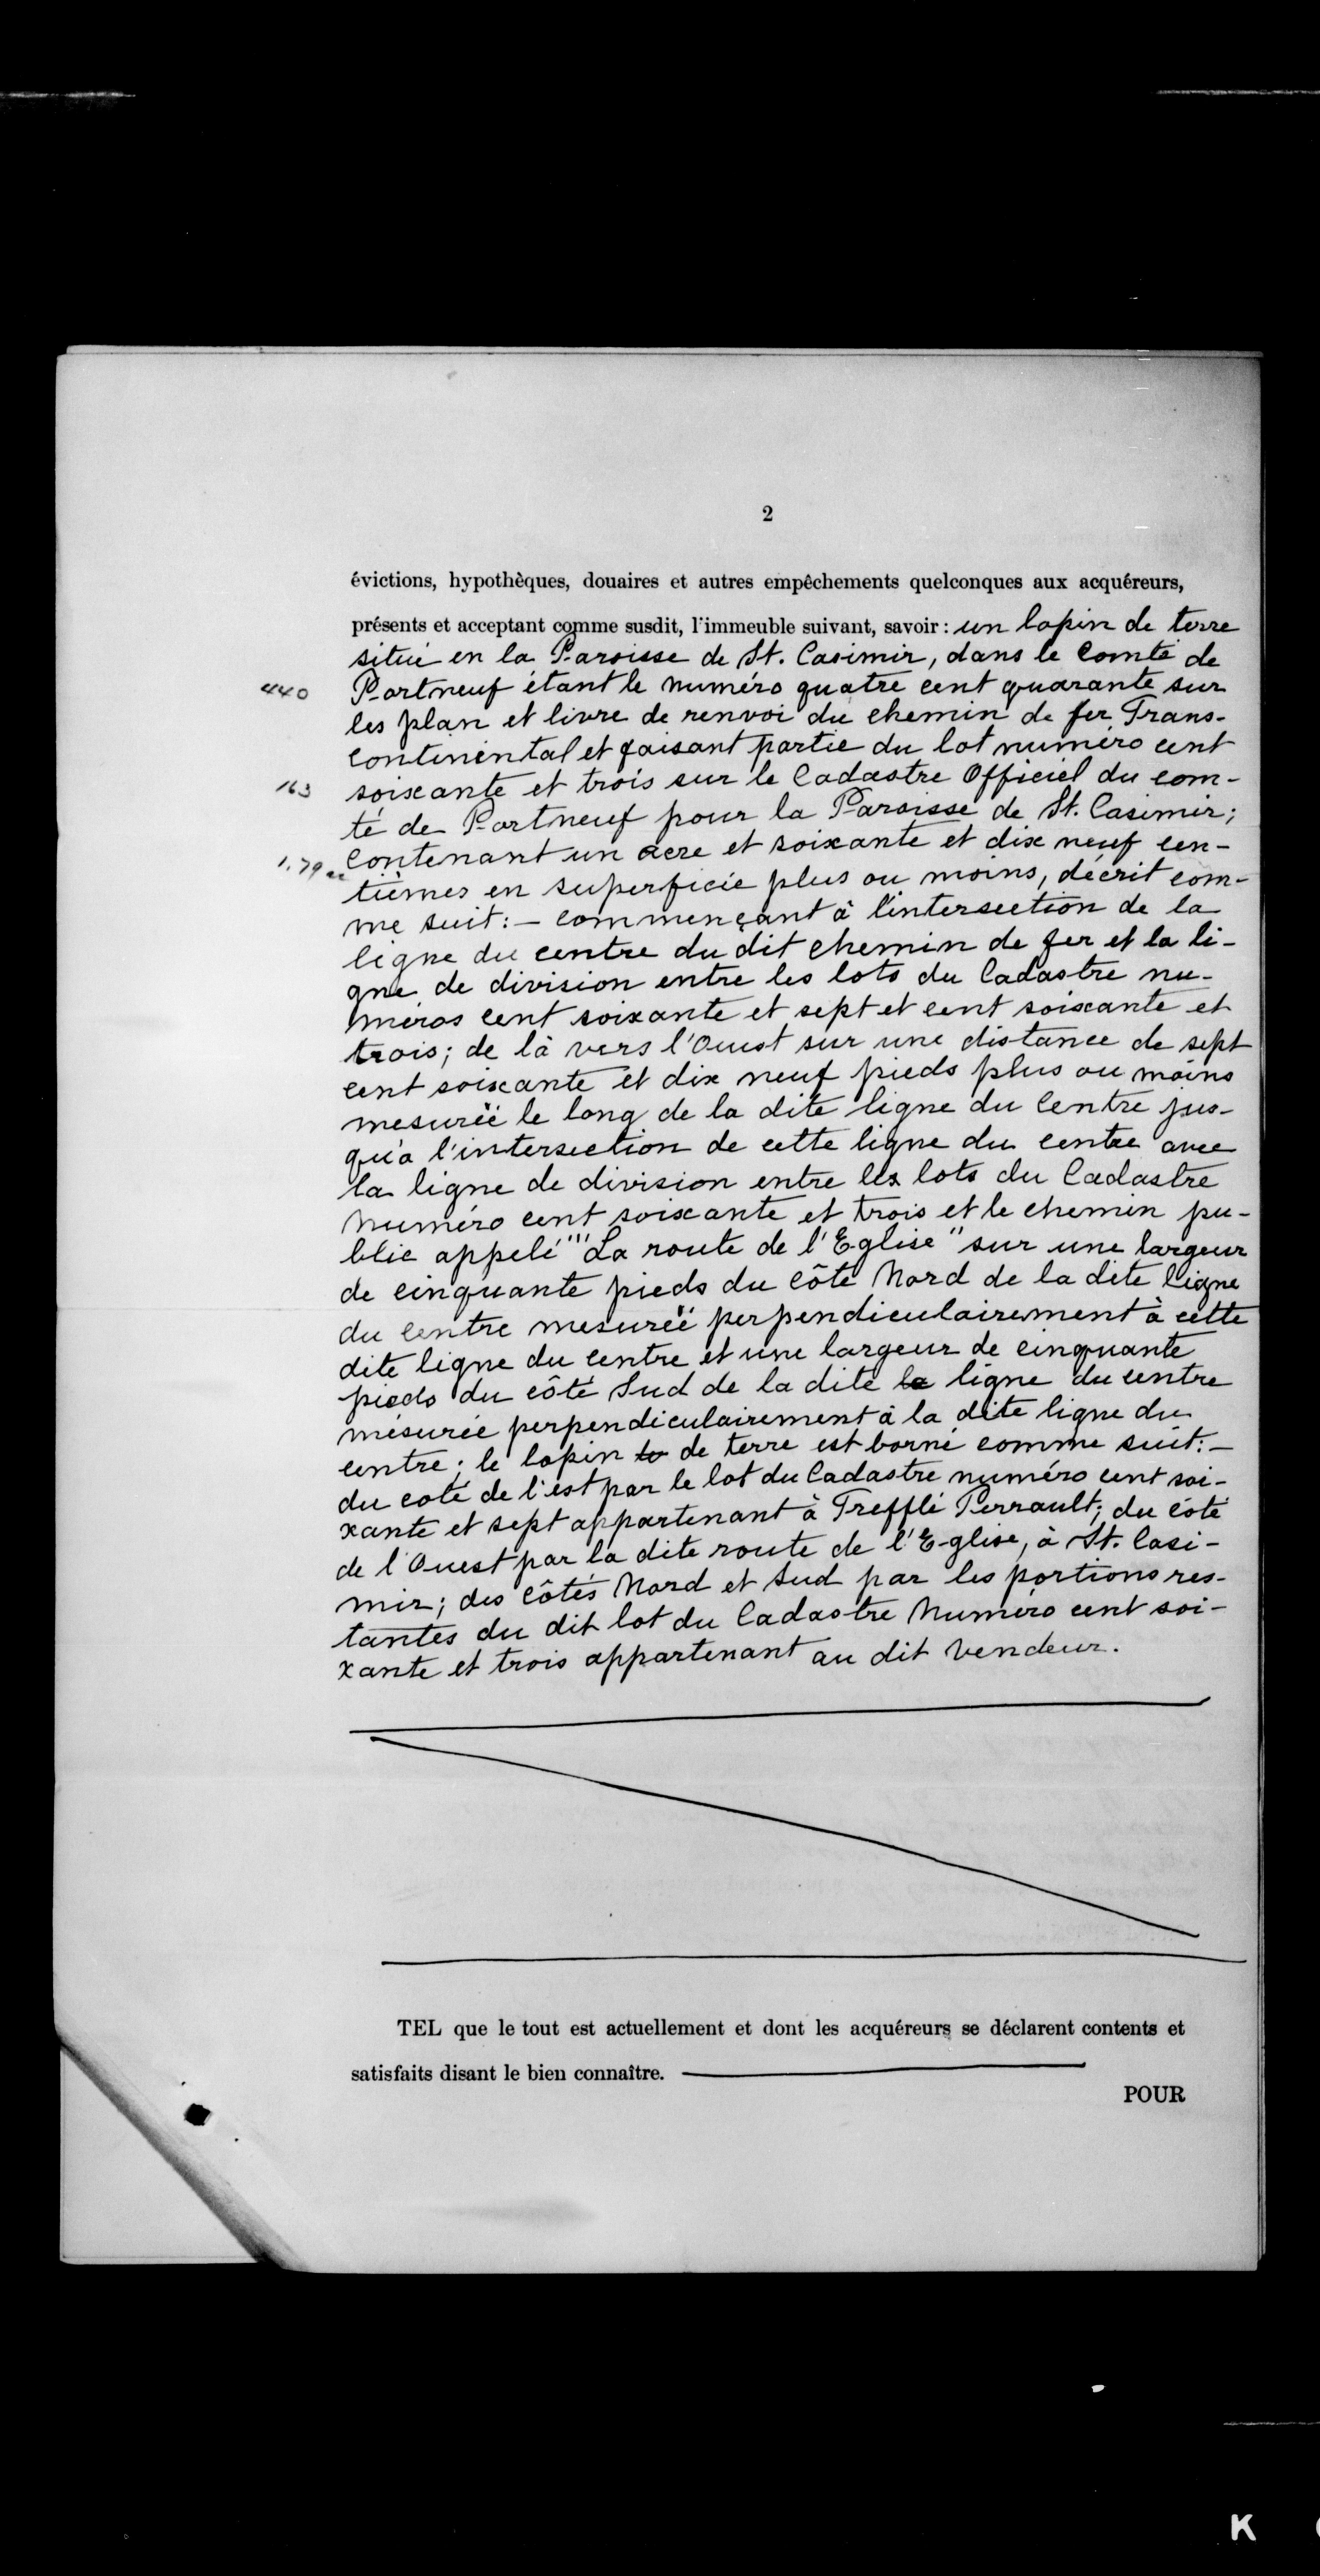 2
évictions, hypothèques, douaires et autres empêchements quelconques aux acquéreurs,
présents et acceptant comme susdit, l'immeuble suivant, savoir : un lopin de terre
situé en la Paroisse de St. Casimir, dans le Comté de
440 Portneuf étant le numéro quatre cent quarante sur
les plan et livre de renvoi du chemin de fer Trans-
continental et faisant partie du lot numéro cent
163 soixante et trois sur le Cadastre Officiel du com-
té de Portneuf pour la Paroisse de St. Casimir;
1.79 ac Contenant un acre et soixante et dix neuf cen-
tièmes en superficie plus ou moins, décrit com-
me suit:- commençant à l'intersection de la
ligne du centre du dit chemin de fer et la li-
gne de division entre les lots du Cadastre nu-
méros cent soixante et sept et cent soixante et
trois; de là vers l'Ouest sur une distance de sept
cent soixante et dix neuf pieds plus ou moins
mesurée le long de la dite ligne du Centre jus-
qu'à l'intersection de cette ligne du centre avec
la ligne de division entre les lots du Cadastre
Numéro cent soixante et trois et le chemin pu-
blic appelé "La route de l'Eglise" sur une largeur
de cinquante pieds du côté Nord de la dite ligne
du centre mesurée perpendiculairement à cette
dite ligne du centre et une largeur de cinquante
pieds du côté Sud de la dite la ligne du centre
mesurée perpendiculairement à la dite ligne du
centre; le lopin to de terre est borné comme suit:-
du coté de l'est par le lot du Cadastre numéro cent soi-
xante et sept appartenant à Trefflé Perrault; du côté
de l'Ouest par la dite route de l'Eglise, à St. Casi-
mir; des côtés Nord et Sud par les portions res-
tantes du dit lot du Cadastre Numéro cent soi-
xante et trois appartenant au dit Vendeur.
TEL que le tout est actuellement et dont les acquéreurs se déclarent contents et
satisfaits disant le bien connaître.
POUR
K